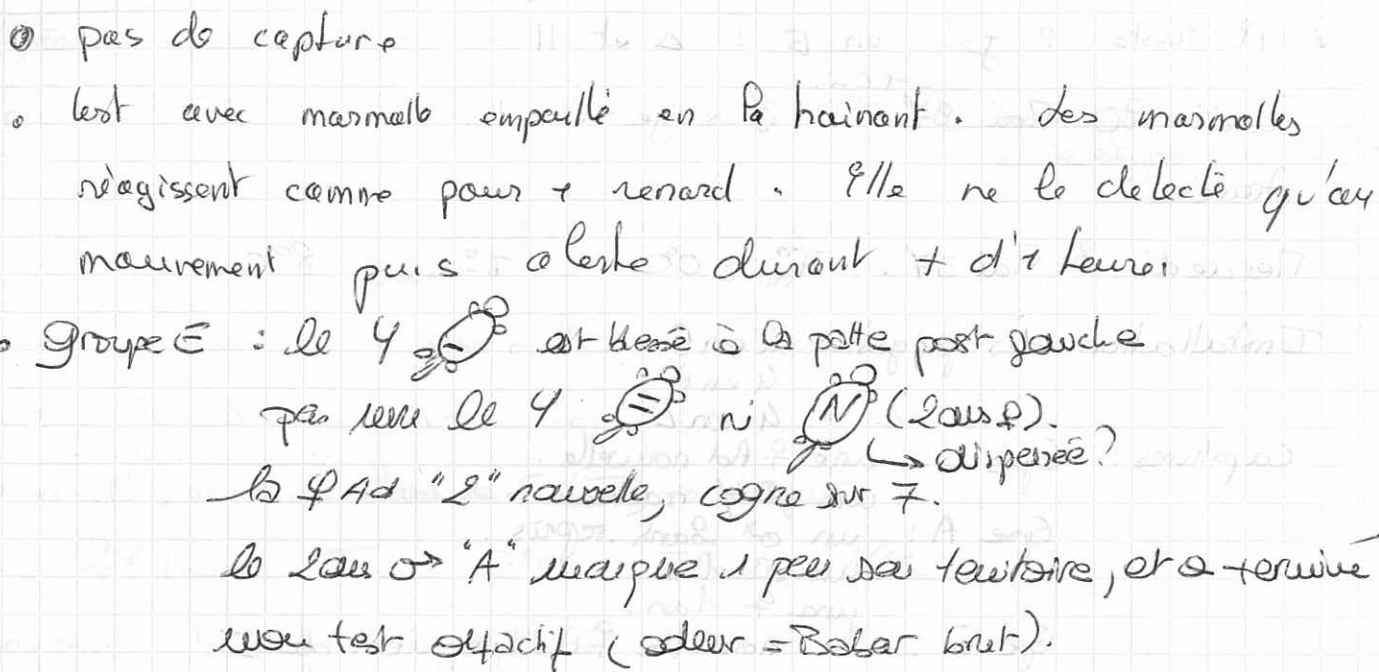 • pas de capture
• test avec marmotte empaillé en la trainant. Les marmottes
réagissent comme pour 1 renard. Elle ne le detecte qu'au
mouvement puis alerte durant + d'1 heure.
• Groupe E : le Y est blessé à la patte post gauche
pas revu le Y ni N (2ans ♀).
↳ dispersée?
la ♀ Ad "2" nouvelle, cogne sur 7.
le 2ans ♂ "A" marque 1 peu son territoire, et a terminé
mon test olfactif (odeur = Babar brut).